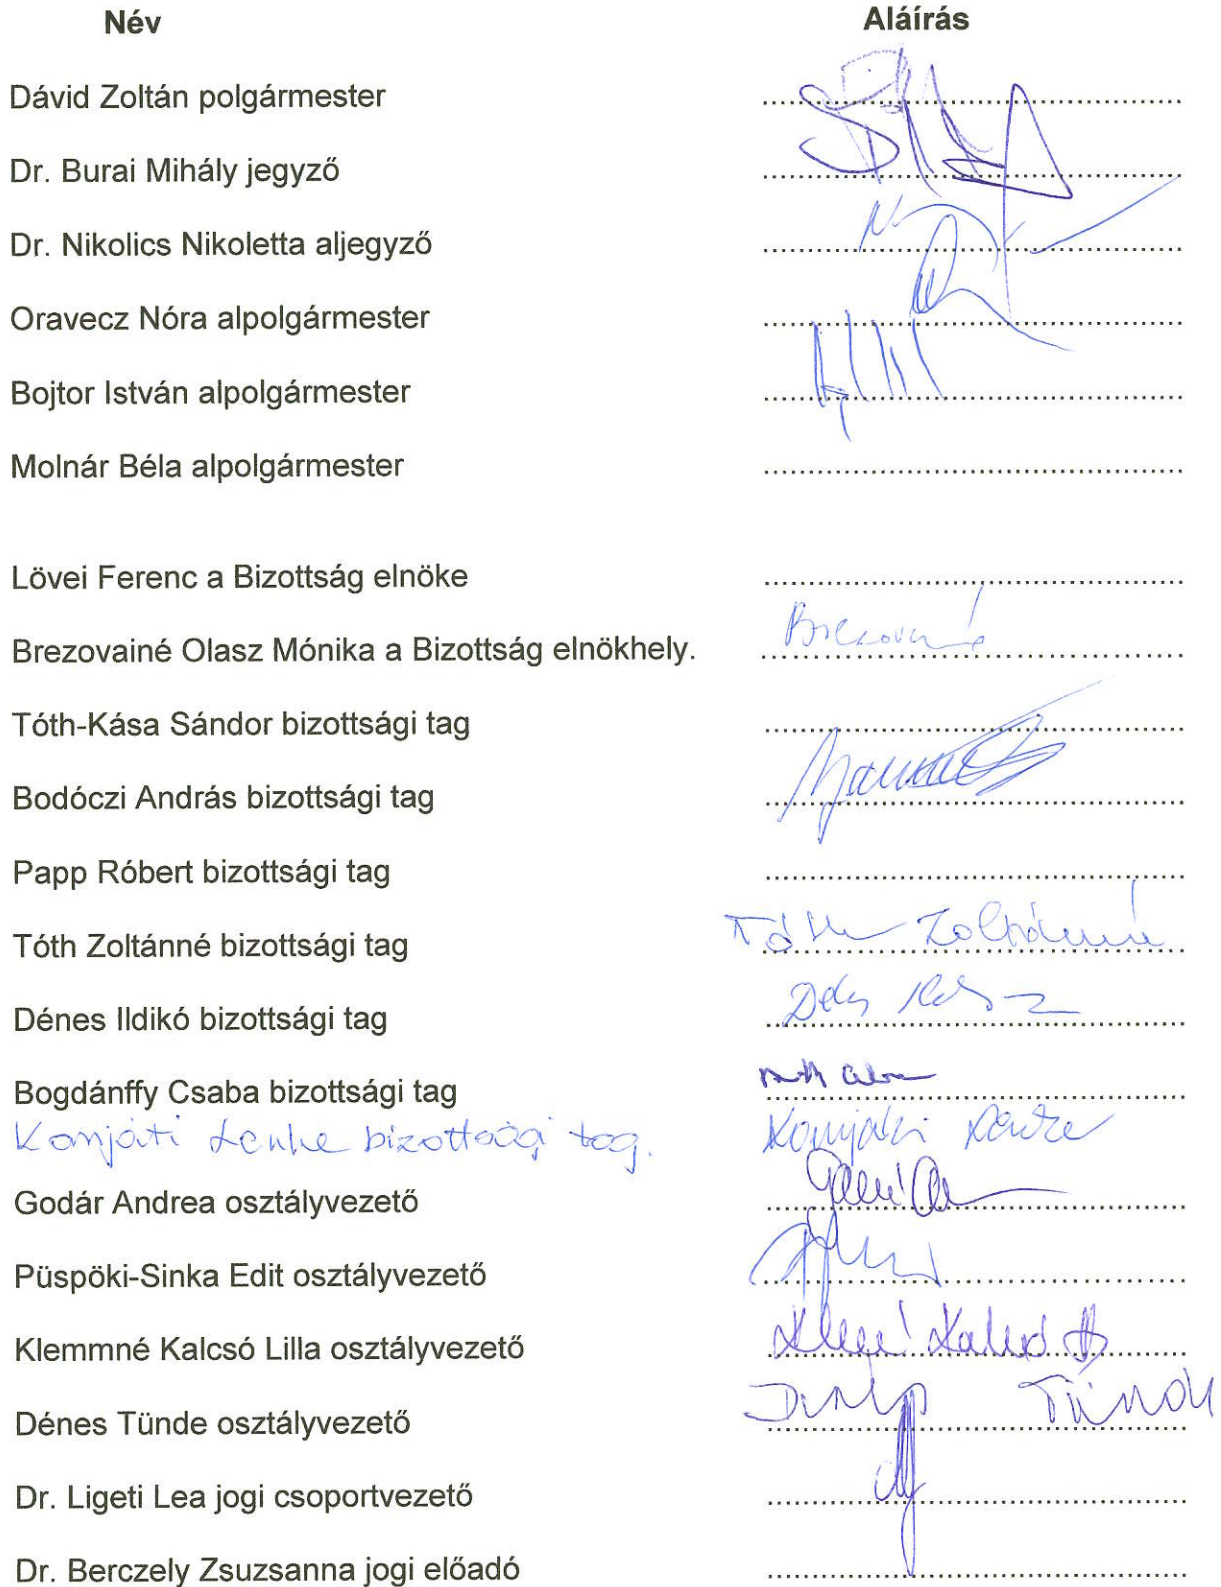 Név Aláírás
Dávid Zoltán polgármester ........................................
Dr. Burai Mihály jegyző ........................................
Dr. Nikolics Nikoletta aljegyző ........................................
Oravecz Nóra alpolgármester ........................................
Bojtor István alpolgármester ........................................
Molnár Béla alpolgármester ........................................
Lövei Ferenc a Bizottság elnöke ........................................
Brezovainé Olasz Mónika a Bizottság elnökhely. Brezovainé
Tóth-Kása Sándor bizottsági tag ........................................
Bodóczi András bizottsági tag ........................................
Papp Róbert bizottsági tag ........................................
Tóth Zoltánné bizottsági tag Tóth Zoltánné
Dénes Ildikó bizottsági tag ........................................
Bogdánffy Csaba bizottsági tag ........................................
Komjáti Lenke bizottsági tag. Komjáti Lenke
Godár Andrea osztályvezető ........................................
Püspöki-Sinka Edit osztályvezető ........................................
Klemmné Kalcsó Lilla osztályvezető ........................................
Dénes Tünde osztályvezető ........................................
Dr. Ligeti Lea jogi csoportvezető ........................................
Dr. Berczely Zsuzsanna jogi előadó ........................................